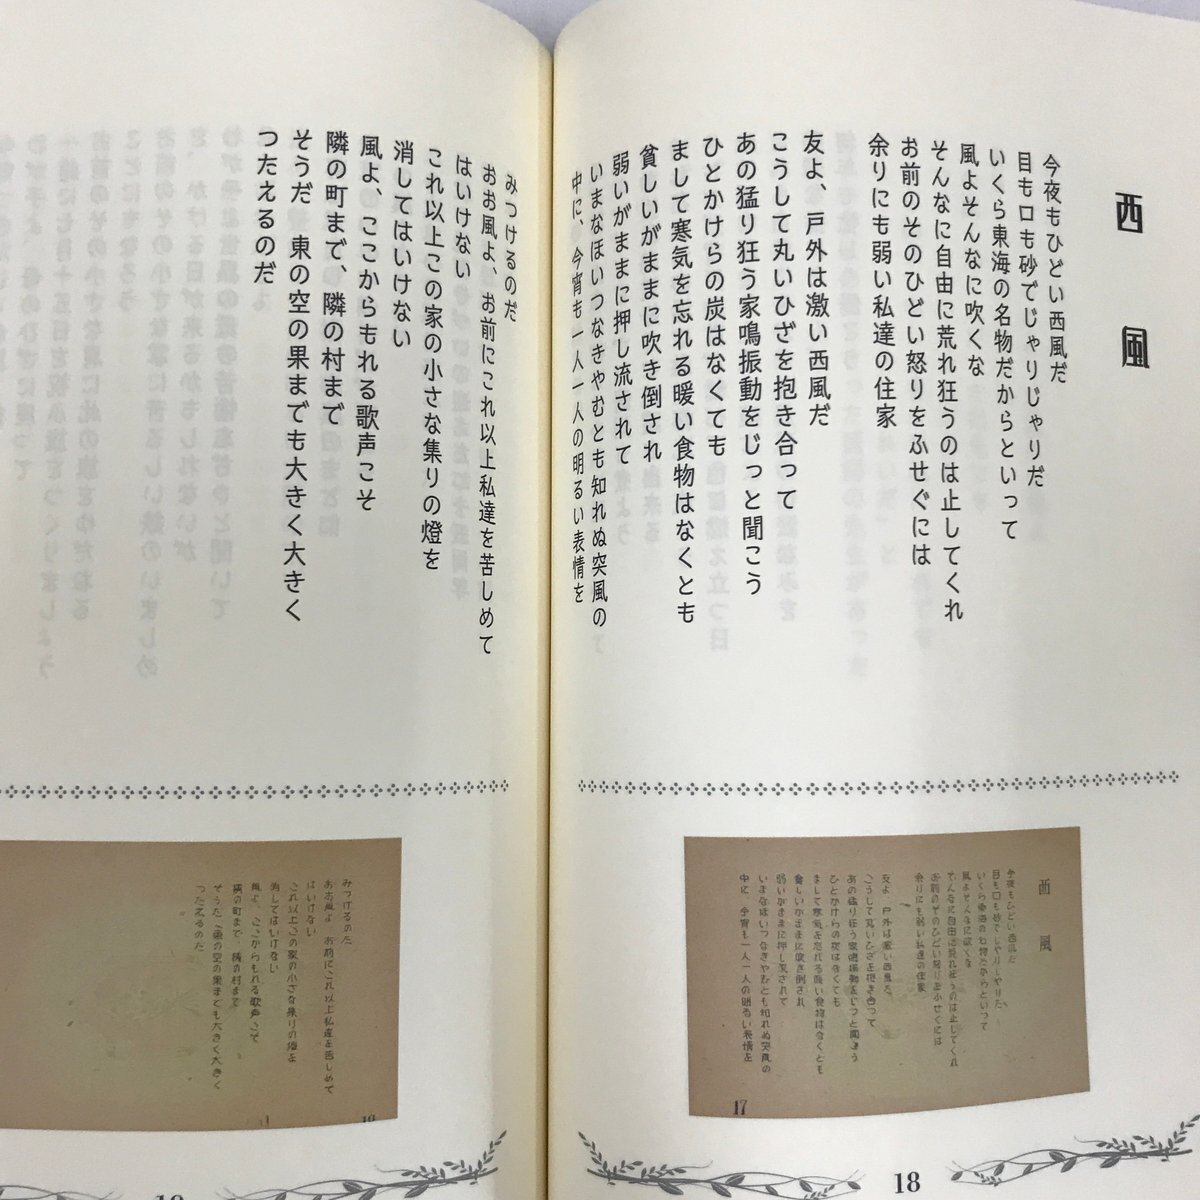 西風
今夜もひどい西風だ
目も口も砂でじゃりじゃりだ
いくら東海の名物だからといって
風よそんなに吹くな
そんなに自由に荒れ狂うのは止してくれ
お前のそのひどい怒りをふせぐには
余りにも弱い私達の住家
友よ、戸外は激い西風だ
こうして丸いひざを抱き合って
あの猛り狂う家鳴振動をじっと聞こう
ひとかけらの炭はなくても
まして寒気を忘れる暖い食物はなくとも
貧しいがままに吹き倒され
弱いがままに押し流されて
いまなほいつなきやむとも知れぬ突風の
中に、今宵も一人一人の明るい表情を
みつけるのだ
おお風よ、お前にこれ以上私達を苦しめて
はいけない
これ以上この家の小さな集りの燈を
消してはいけない
風よ、ここからもれる歌声こそ
隣の町まで、隣の村まで
そうだ 東の空の果までも大きく大きく
つたえるのだ
西風
今夜もひどい西風だ
目も口も砂でじゃりじゃりだ
いくら東海の名物だからといって
風よそんなに吹くな
そんなに自由に荒れ狂うのは止してくれ
お前のそのひどい怒りをふせぐには
余りにも弱い私達の住家
友よ、戸外は激い西風だ
こうして丸いひざを抱き合って
あの猛り狂う家鳴振動をじっと聞こう
ひとかけらの炭はなくても
まして寒気を忘れる暖い食物はなくとも
貧しいがままに吹き倒され
弱いがままに押し流されて
いまなほいつなきやむとも知れぬ突風の
中に、今宵も一人一人の明るい表情を
17
みつけるのだ
おお風よ、お前にこれ以上私達を苦しめて
はいけない
これ以上この家の小さな集りの燈を
消してはいけない
風よ、ここからもれる歌声こそ
隣の町まで、隣の村まで
そうだ 東の空の果までも大きく大きく
つたえるのだ
18